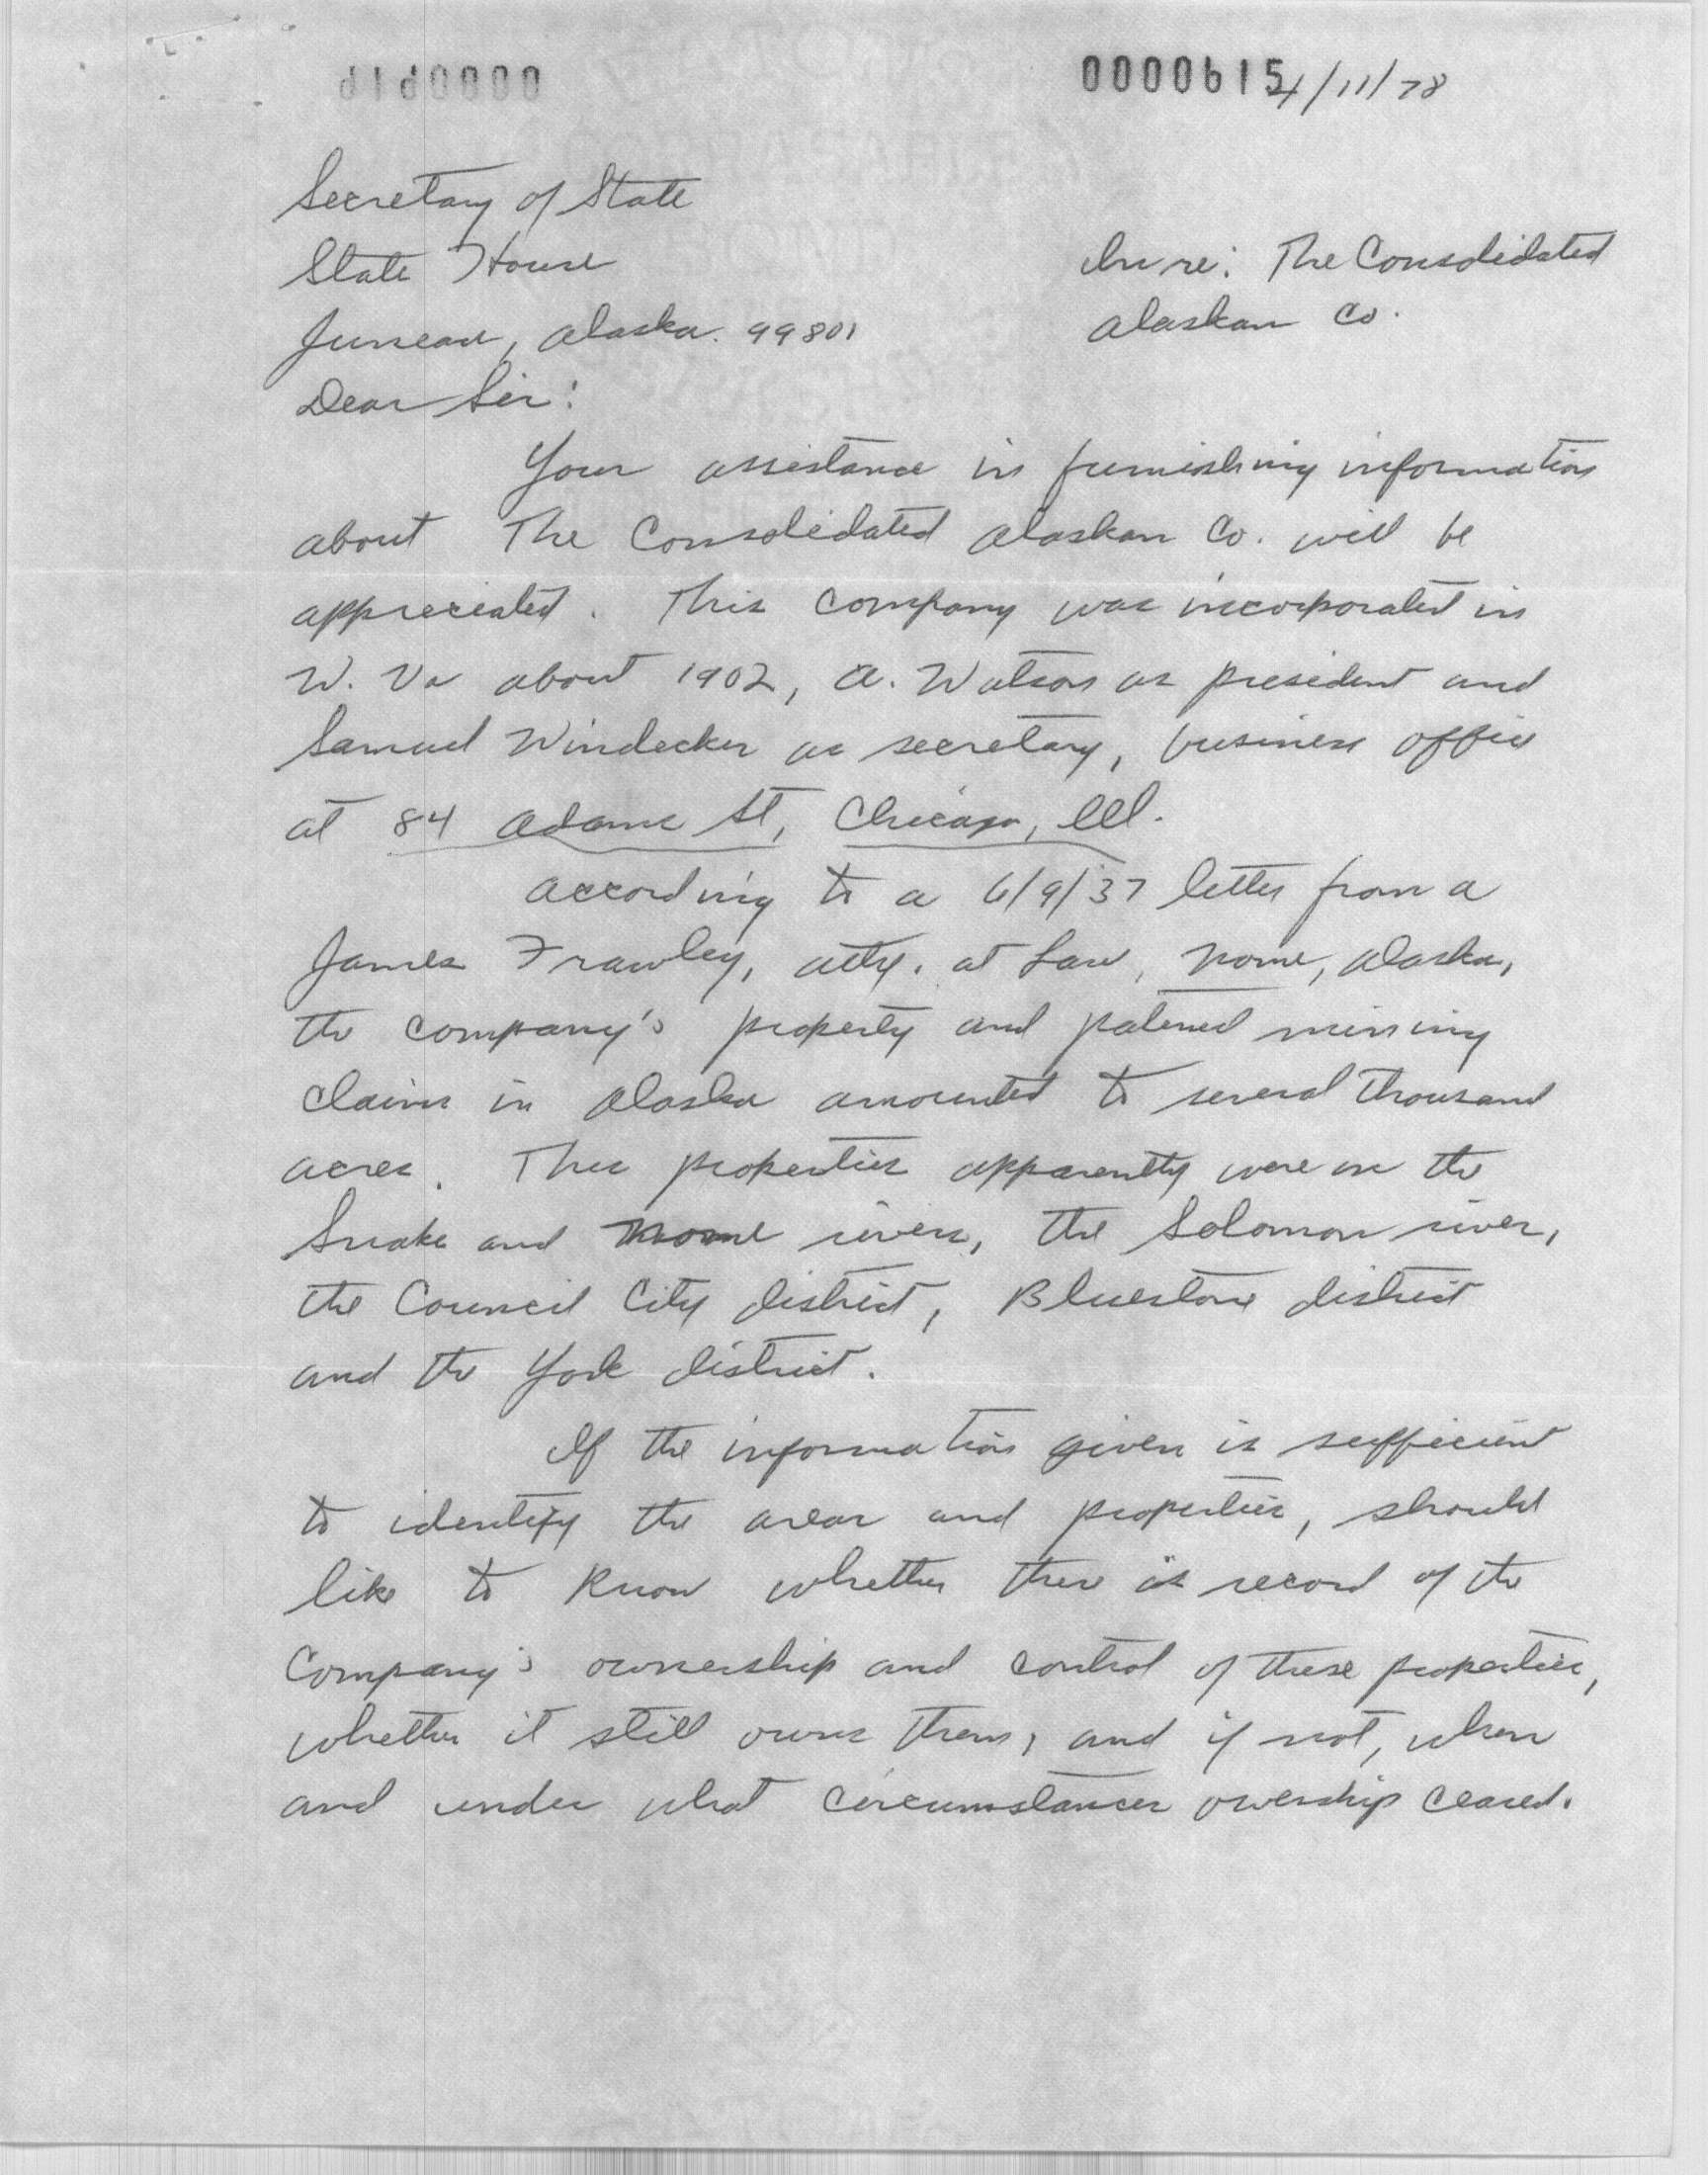 0000615 4/11/78
Secretary of State
State House
In re: The Consolidated
Juneau, Alaska. 99801
Alaskan Co.
Dear Sir:
Your assistance in furnishing information
about The Consolidated Alaskan Co. will be
appreciated. This company was incorporated in
W. Va about 1902, A. Watson as president and
Samuel Windecker as secretary, business office
at 84 Adams St, Chicago, Ill.
According to a 6/9/37 letter from a
James Frawley, atty. at Law, Nome, Alaska,
the company's property and patened mining
claims in Alaska amounted to several thousand
acres. The properties apparently were on the
Snake and Nome rivers, the Solomon river,
the Council City district, Bluestone district
and the York district.
If the information given is sufficient
to identify the areas and properties, should
like to know whether there is record of the
Company's ownership and control of these properties,
whether it still owns them, and if not, when
and under what circumstances owership ceased.